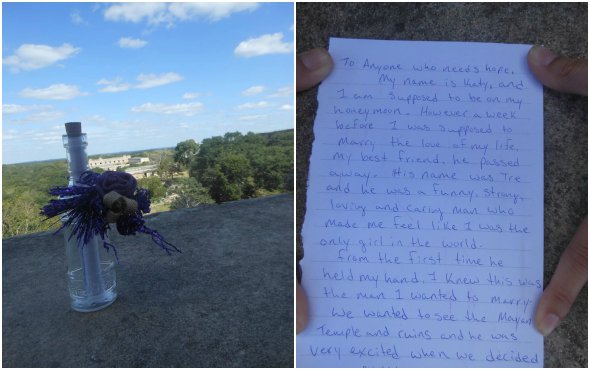 To Anyone who needs hope.
My name is Katy, and
I am supposed to be on my
honeymoon. However a week
before I was supposed to
marry the love of my life,
my best friend, he passed
away. His name was Tre
and he was a funny, strong,
loving and caring man who
made me feel like I was the
only girl in the world.
From the first time he
held my hand, I knew this was
the man I wanted to marry.
We wanted to see the Mayan
Temple and ruins and he was
very excited when we decided